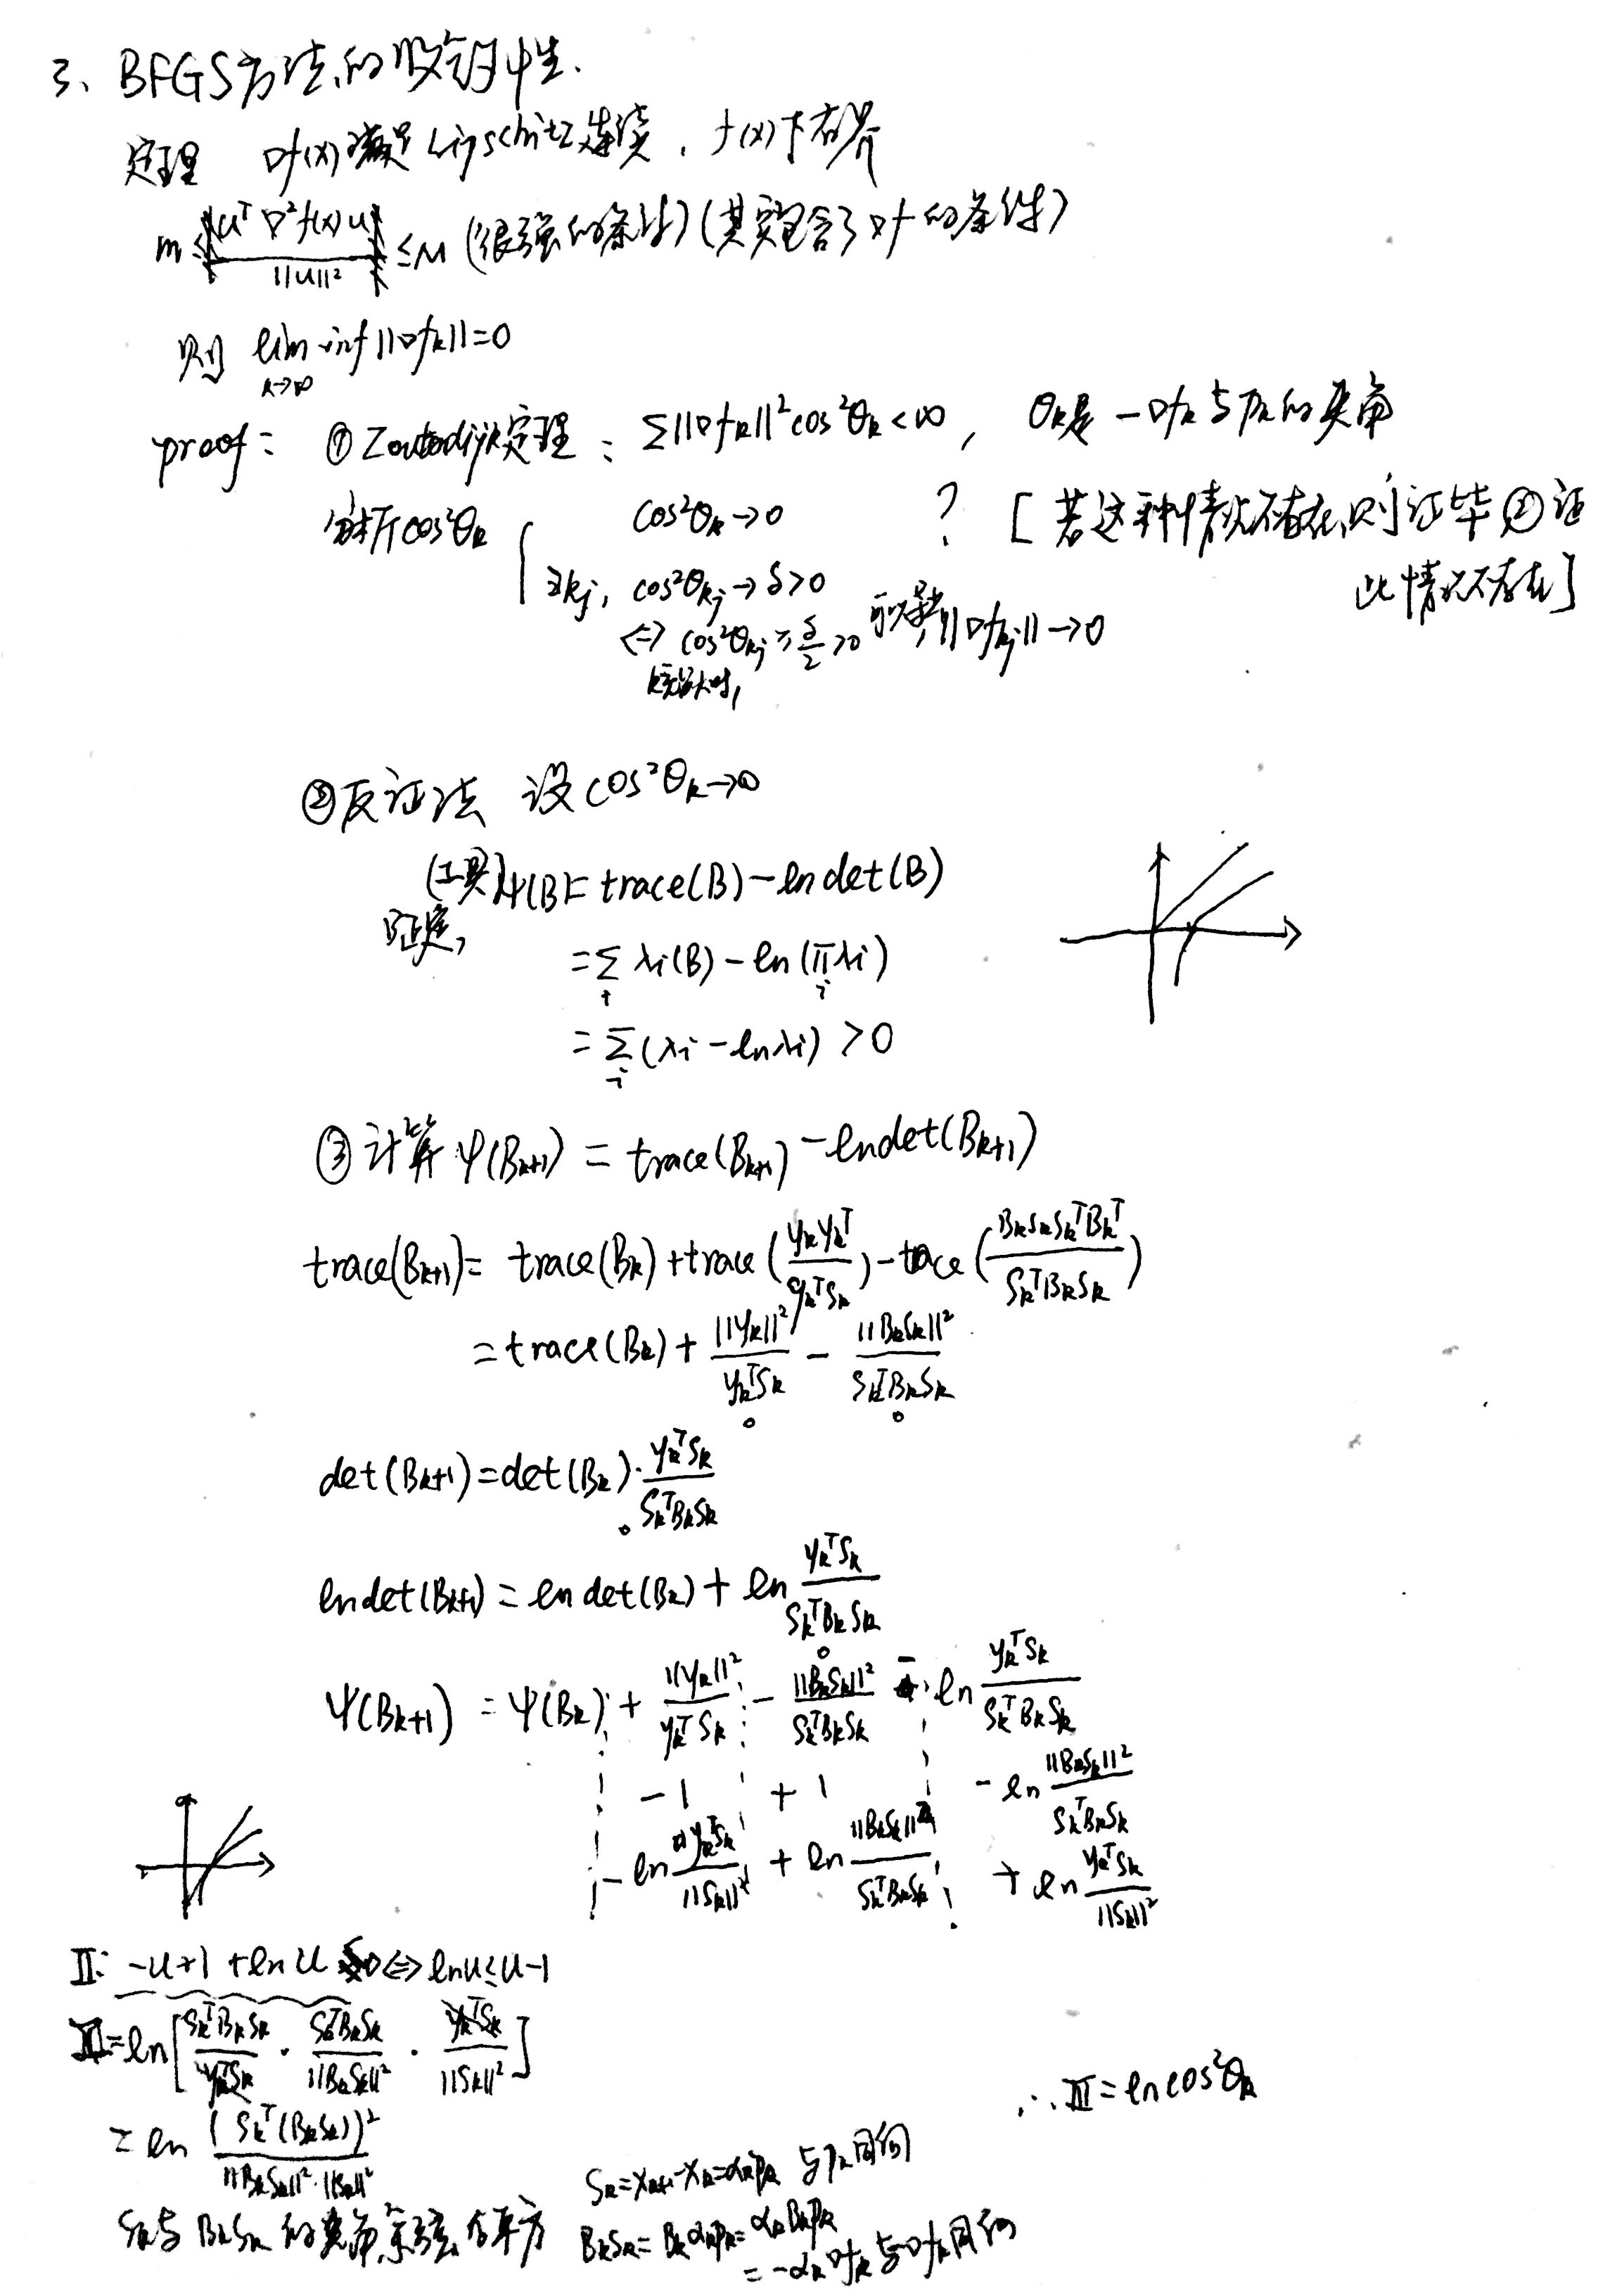 3、BFGS方法的收敛性.
定理 ∇f(x)满足Lipschitz连续，f(x)下有界
m ≤ u^T ∇²f(x) u / ||u||² ≤ M (很强的条件)(其实包含了∇f的条件)
则 lim inf_{k→∞} ||∇f_k|| = 0
proof: ① Zoutendijk定理: Σ||∇f_k||² cos²θ_k < ∞, θ_k是 -∇f_k 与 p_k 的夹角
分析cos²θ_k { cos²θ_k → 0 ? [若这种情况不存在,则证毕 ②证
此情况不存在]
∃k_j, cos²θ_{k_j} → δ > 0
⇔ cos²θ_{k_j} ≥ δ/2 > 0 可以导出 ||∇f_{k_j}|| → 0
k充分大时,
②反证法 设 cos²θ_k → 0
(工具) ψ(B) = trace(B) - ln det(B)
B正定,
= Σ_i λ_i(B) - ln(Π_i λ_i)
= Σ_i (λ_i - lnλ_i) > 0
③计算 ψ(B_{k+1}) = trace(B_{k+1}) - ln det(B_{k+1})
trace(B_{k+1}) = trace(B_k) + trace(y_k y_k^T / y_k^T s_k) - trace(B_k s_k s_k^T B_k^T / s_k^T B_k s_k)
= trace(B_k) + ||y_k||² / y_k^T s_k - ||B_k s_k||² / s_k^T B_k s_k
det(B_{k+1}) = det(B_k) · y_k^T s_k / s_k^T B_k s_k
ln det(B_{k+1}) = ln det(B_k) + ln y_k^T s_k / s_k^T B_k s_k
ψ(B_{k+1}) = ψ(B_k) + ||y_k||² / y_k^T s_k - ||B_k s_k||² / s_k^T B_k s_k - ln y_k^T s_k / s_k^T B_k s_k
- 1 + 1 - ln ||B_k s_k||² / s_k^T B_k s_k
- ln y_k^T s_k / ||s_k||² + ln ||B_k s_k||² / s_k^T B_k s_k + ln y_k^T s_k / ||s_k||²
II: -u+1+ln u ≤0 ⇔ ln u ≤ u-1
III = ln[ s_k^T B_k s_k / y_k^T s_k · s_k^T B_k s_k / ||B_k s_k||² · y_k^T s_k / ||s_k||² ]
∴ III = ln cos²θ_k
= ln (s_k^T (B_k s_k))² / ||B_k s_k||² · ||s_k||²
s_k = x_{k+1} - x_k = α_k p_k 与 p_k 同向
s_k与 B_k s_k 的夹角余弦的平方
B_k s_k = B_k α_k p_k = α_k B_k p_k
= -α_k ∇f_k 与 ∇f_k 同向